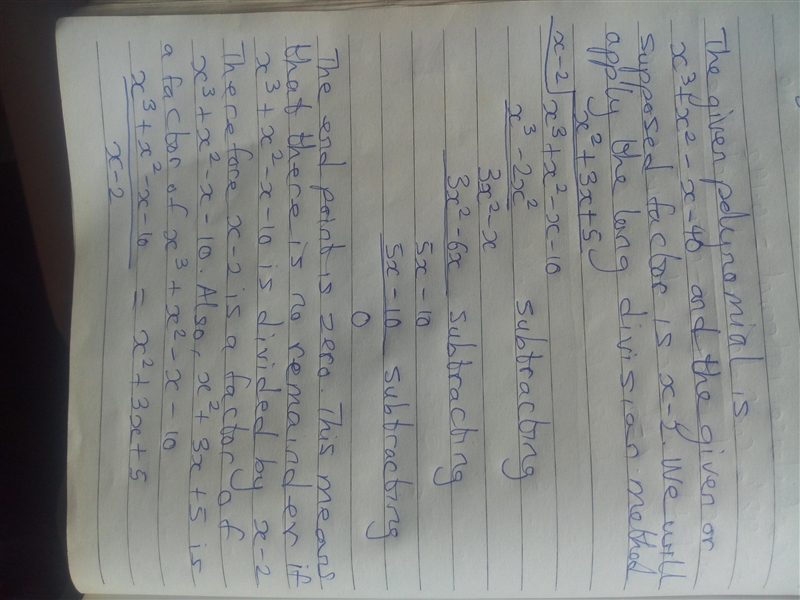 The given polynomial is
x³+x²-x-40 and the given or
supposed factor is x-2. We will
apply the long division method
x²+3x+5
x-2 x³+x²-x-10
x³-2x² subtracting
3x²-x
3x²-6x subtracting
5x-10
5x-10 subtracting
0
The end point is zero. This means
that there is no remainder if
x³+x²-x-10 is divided by x-2
Therefore x-2 is a factor of
x³+x²-x-10. Also, x²+3x+5 is
a factor of x³+x²-x-10
x³+x²-x-10 = x²+3x+5
x-2